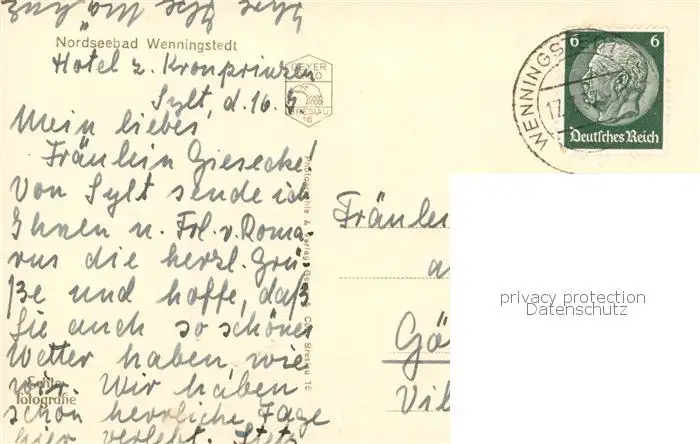 Nordseebad Wenningstedt
Hotel z. Kronprinzen
Sylt, d. 16. 9
Mein liebes
Fräulein Giesecke!
Von Sylt sende ich
Ihnen u. Frl. v. Roma
rus die herzl. Grü
ße und hoffe, daß
Sie auch so schönes
Wetter haben, wie
wir. Wir haben
schon herrliche Tage
hier verlebt. Stets
Echte
Fotografie
GEYER
BRESLAU
16
Photographie & Verlag Geyer & Co., Breslau 16
WENNINGSTEDT
17.
6 6
Deutsches Reich
Fräulei
Gö
Vil
privacy protection
Datenschutz